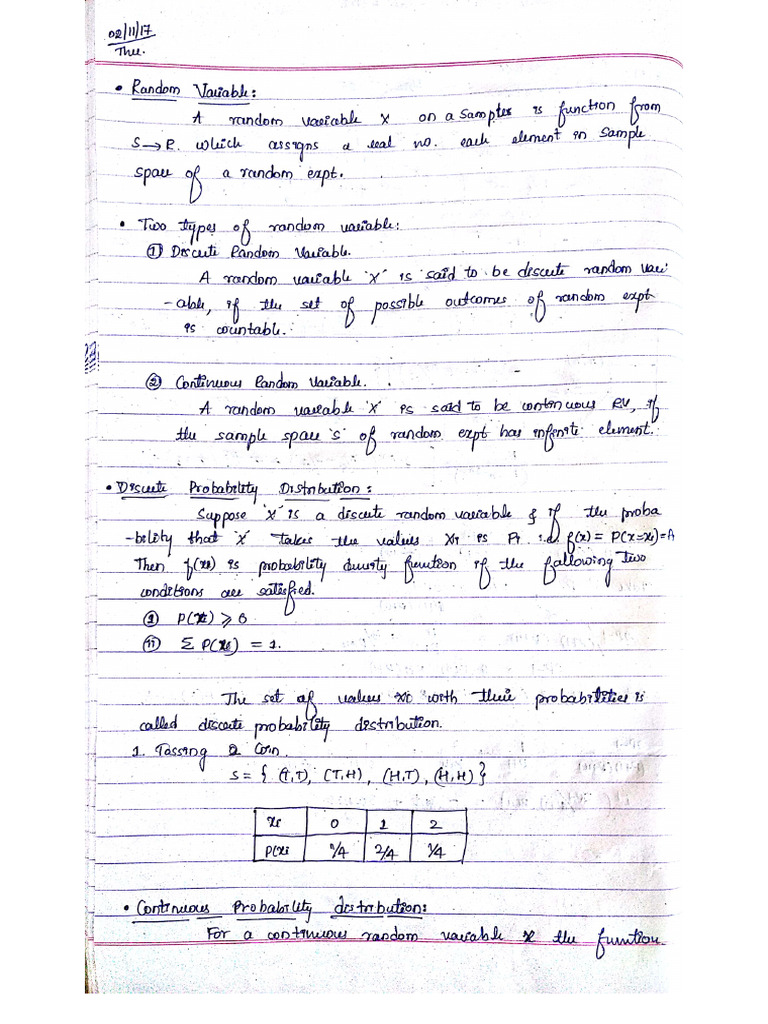 02/11/17
Thu.
• Random Variable:
A random variable X on a samples is function from
S→R. which assigns a real no. each element in sample
space of a random expt.
• Two types of random variable:
① Discrete Random Variable.
A random variable 'X' is said to be discrete random vari
-able, if the set of possible outcomes of random expt
is countable.
② Continuous Random Variable.
A random variable 'X' is said to be continuous RV, if
the sample space 'S' of random expt has infinite element.
• Discrete Probability Distribution:
Suppose 'X' is a discrete random variable & if the proba
-bility that 'X' takes the values xi is Pi i.e f(x) = P(x=xi)=
Then f(xi) is probability density function if the following two
conditions are satisfied.
① P(xi) ⩾ 0
⑪ Σ P(xi) = 1.
The set of values xi with their probabilities is
called discrete probability distribution.
1. Tossing 2 Coin.
S = { (T,T), (T,H), (H,T), (H,H) }
xi 0 1 2
P(xi /4 2/4 1/4
• Continuous Probability distribution:
For a continuous random variable X the funtion